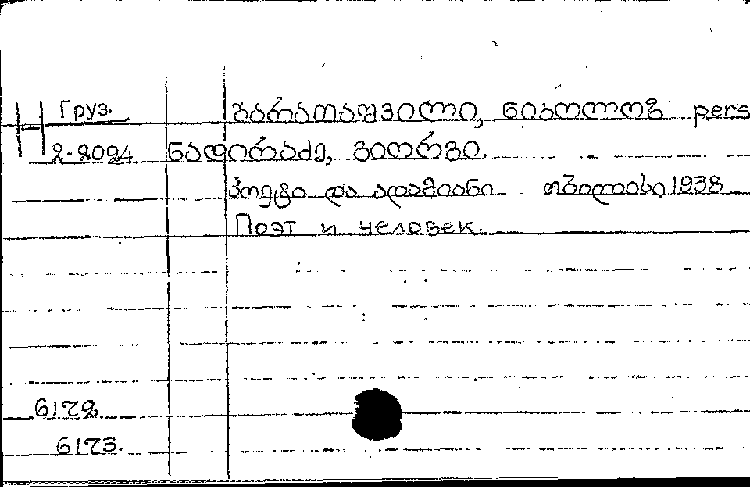 Груз. ბარათაშვილი, ნიკოლოზ pers
2-2024 ნადირაძე, გიორგი.
პოეტი და ადამიანი თბილისი 1938
Поэт и человек.
6172
6173.